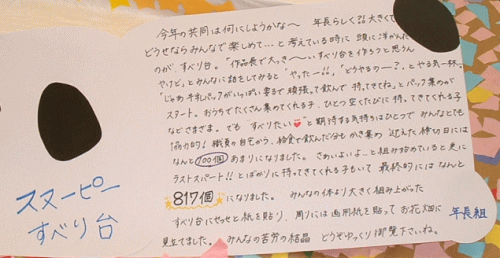 スヌーピー
すべり台
今年の共同は何にしようかな〜 年長らしく 大きくて
どうせならみんなで楽しめて…と考えている時に 頭に浮かんだ
のが すべり台。"作品展で大っき〜いすべり台を作ろうと思うん
やけど"とみんなに話をしてみると "やったー!!" "どうやるのー?"とやる気一杯。
"じゃあ牛乳パックがいっぱい要るで 頑張って飲んで 持ってきてね"とパック集めが
スタート。おうちでたくさん集めてくれる子、ひとつ空くたびに 持ってきてくれる子
などさまざま。でも "すべりたい❤"と期待する気持ちはひとつで みんなとても
協力的! 職員の自宅から、給食で飲んだ分もかき集め 迎えた締め切日には
なんと 700個 あまりになりました。さあいよいよ…と組み始めていると 更に
ラストスパート!! とばかりに 持ってきてくれる子もいて 最終的には なんと
817個 になりました。 みんなの体より大きく組み上がった
すべり台にせっせと紙を貼り、周りには画用紙を貼って お花畑に
見立てました。 みんなの苦労の結晶 どうぞゆっくり御覧下さいね。
年長組